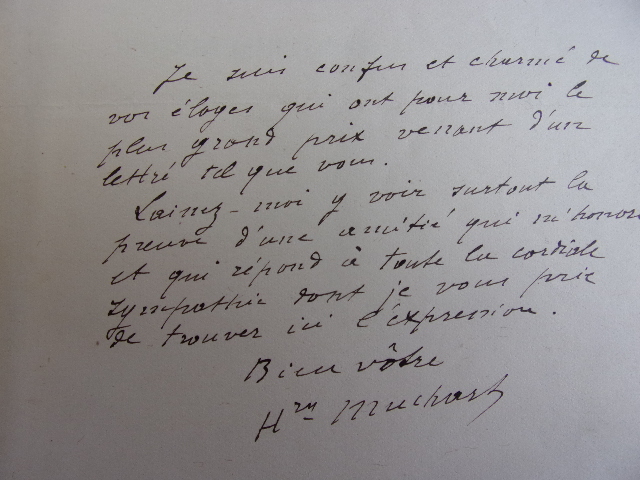 Je suis confus et charmé de
vos éloges qui ont pour moi le
plus grand prix venant d'un
lettré tel que vous.
Laissez-moi y voir surtout la
preuve d'une amitié qui m'honore
et qui répond à toute la cordiale
sympathie dont je vous prie
de trouver ici l'expression.
Bien vôtre
Hry Muchart